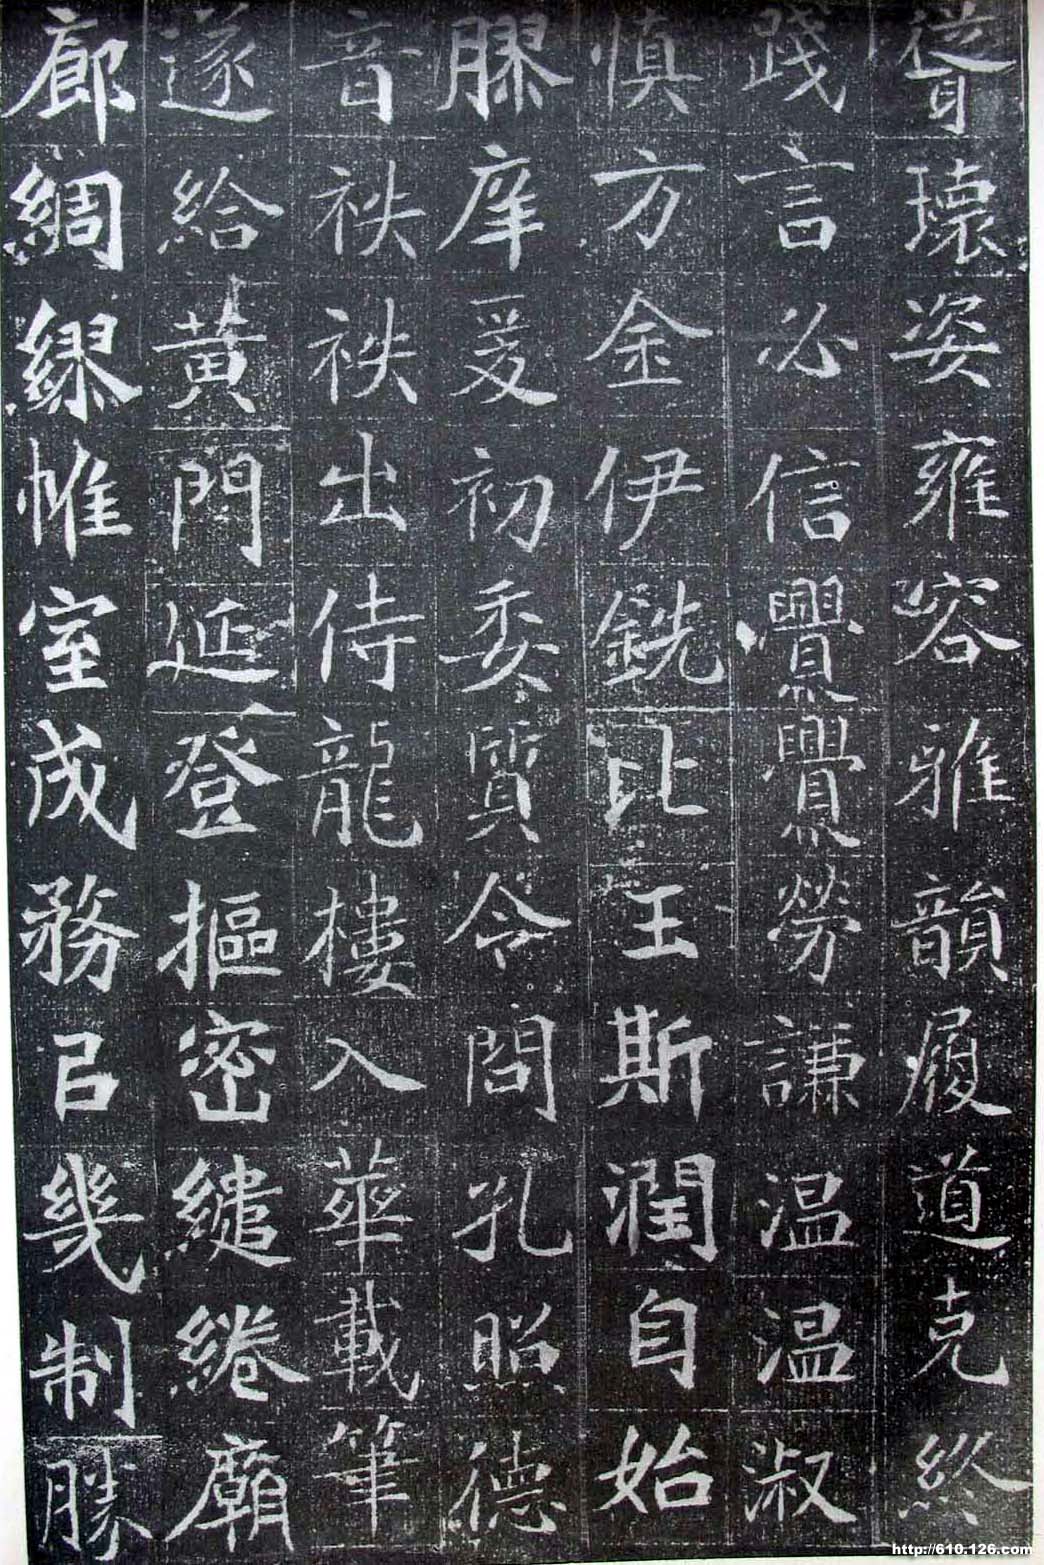 聳瓌姿雍容雅韻履道克終
踐言必信亹亹勞謙温温淑
慎方金伊銑比玉斯潤自始
膠庠爰初委質令問孔照德
音祑祑出侍龍樓入華載筆
遂給黃門延登樞密繾綣廟
廊綢繆帷室成務㠯幾制勝
http://610.126.com